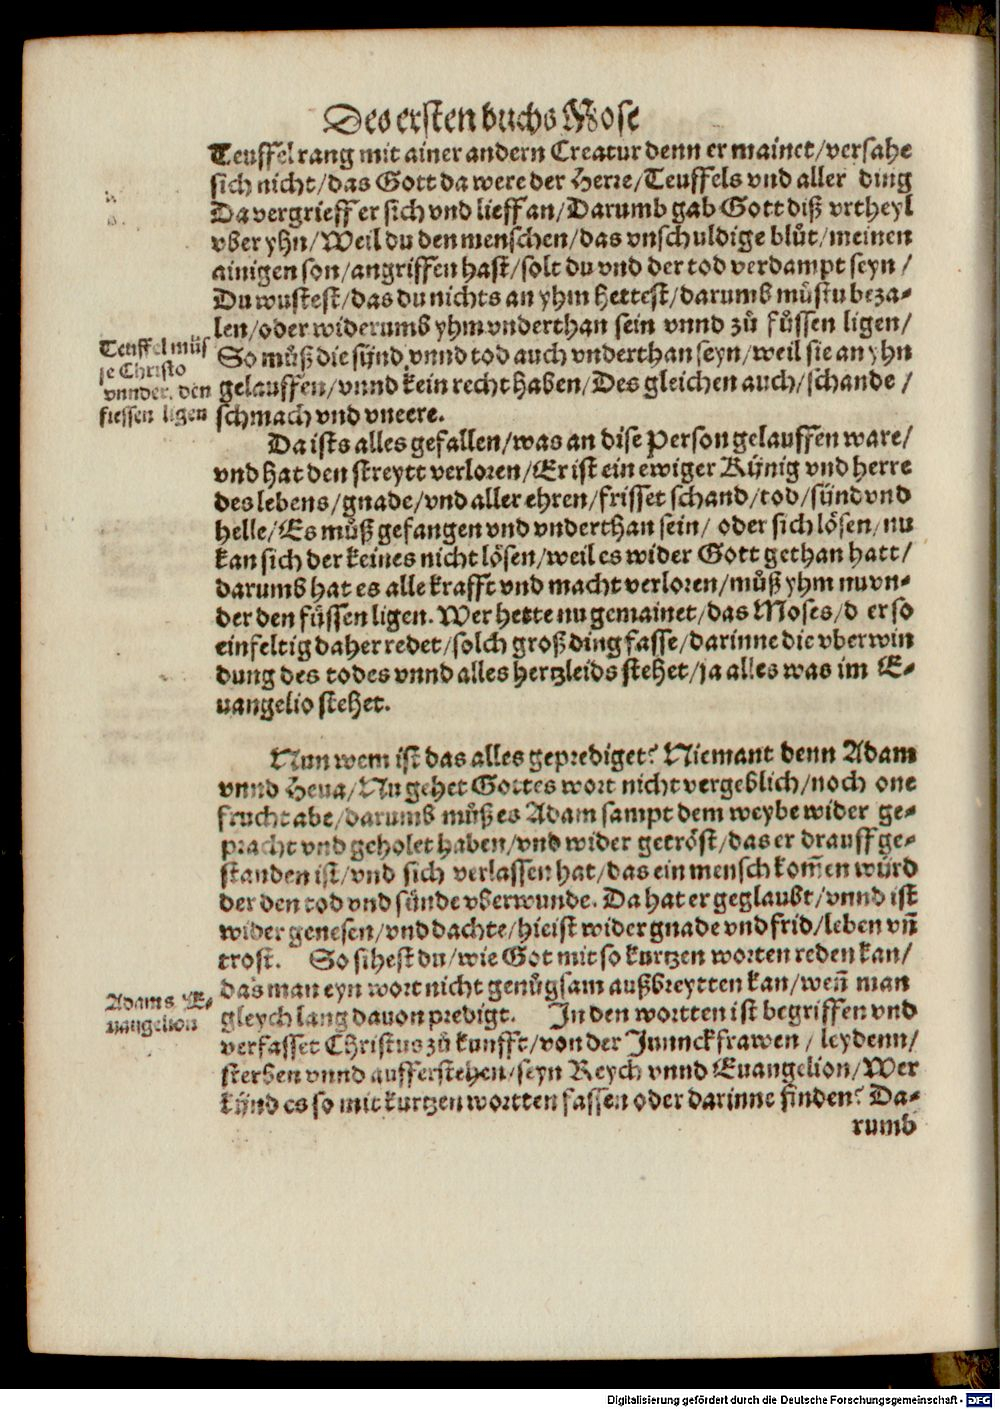 Des ersten buchs Mose
Teuffel rang mit ainer andern Creatur denn er mainet/versahe
sich nicht/das Gott da were der Herre/Teuffels vnd aller ding
Da vergrieff er sich vnd lieff an/Darumb gab Gott diß vrtheyl
vber yhn/Weil du den menschen/das vnschuldige blůt/meinen
ainigen son/angriffen hast/solt du vnd der tod verdampt seyn/
Du wustest/das du nichts an yhm hettest/darumb můstu beza-
len/oder widerumb yhm vnderthan sein vnnd zů fůssen ligen/
So můß die sünd vnnd tod auch vnderthan seyn/weil sie an yhn
gelauffen/vnnd kein recht haben/Des gleichen auch/schande/
schmach vnd vneere.
Teuffel můs
se Christo
vnnder den
fiessen ligen
Da ists alles gefallen/was an dise person gelauffen ware/
vnd hat den streytt verloren/Er ist ein ewiger Künig vnd herre
des lebens/gnade/vnd aller ehren/frisset schand/tod/sünd vnd
helle/Es můß gefangen vnd vnderthan sein/oder sich lösen/nu
kan sich der keines nicht lösen/weil es wider Gott gethan hatt/
darumb hat es alle krafft vnd macht verloren/můß yhm nu vn-
der den füssen ligen. Wer hette nu gemainet/das Moses/d er so
einfeltig daher redet/solch groß ding fasse/darinne die vberwin
dung des todes vnnd alles hertzleids stehet/ja alles was im E-
uangelio stehet.
Nun wem ist das alles geprediget? Niemant denn Adam
vnnd Heua/Nu gehet Gottes wort nicht vergeblich/noch one
frucht abe/darumb můß es Adam sampt dem weybe wider ge-
pracht vnd geholet haben/vnd wider getröst/das er drauff ge-
standen ist/vnd sich verlassen hat/das ein mensch kom̄en würd
der den tod vnd sünde vberwunde. Da hat er geglaubt/vnnd ist
wider genesen/vnd dachte/hie ist wider gnade vnd frid/leben vn̄
trost. So sihest du/wie Got mit so kurtzen worten reden kan/
das man eyn wort nicht genůgsam außbreytten kan/wen̄ man
gleych lang dauon predigt. In den wortten ist begriffen vnd
verfasset Christus zů kunfft/von der Junnckfrawen/leydenn/
sterben vnnd aufferstehen/seyn Reych vnnd Euangelion/Wer
künd es so mit kurtzen wortten fassen oder darinne finden? Da-
rumb
Adams E-
uangelion
Digitalisierung gefördert durch die Deutsche Forschungsgemeinschaft - DFG